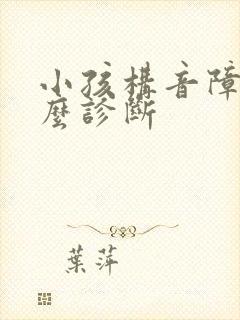 小孩構音障
麼診斷
葉萍